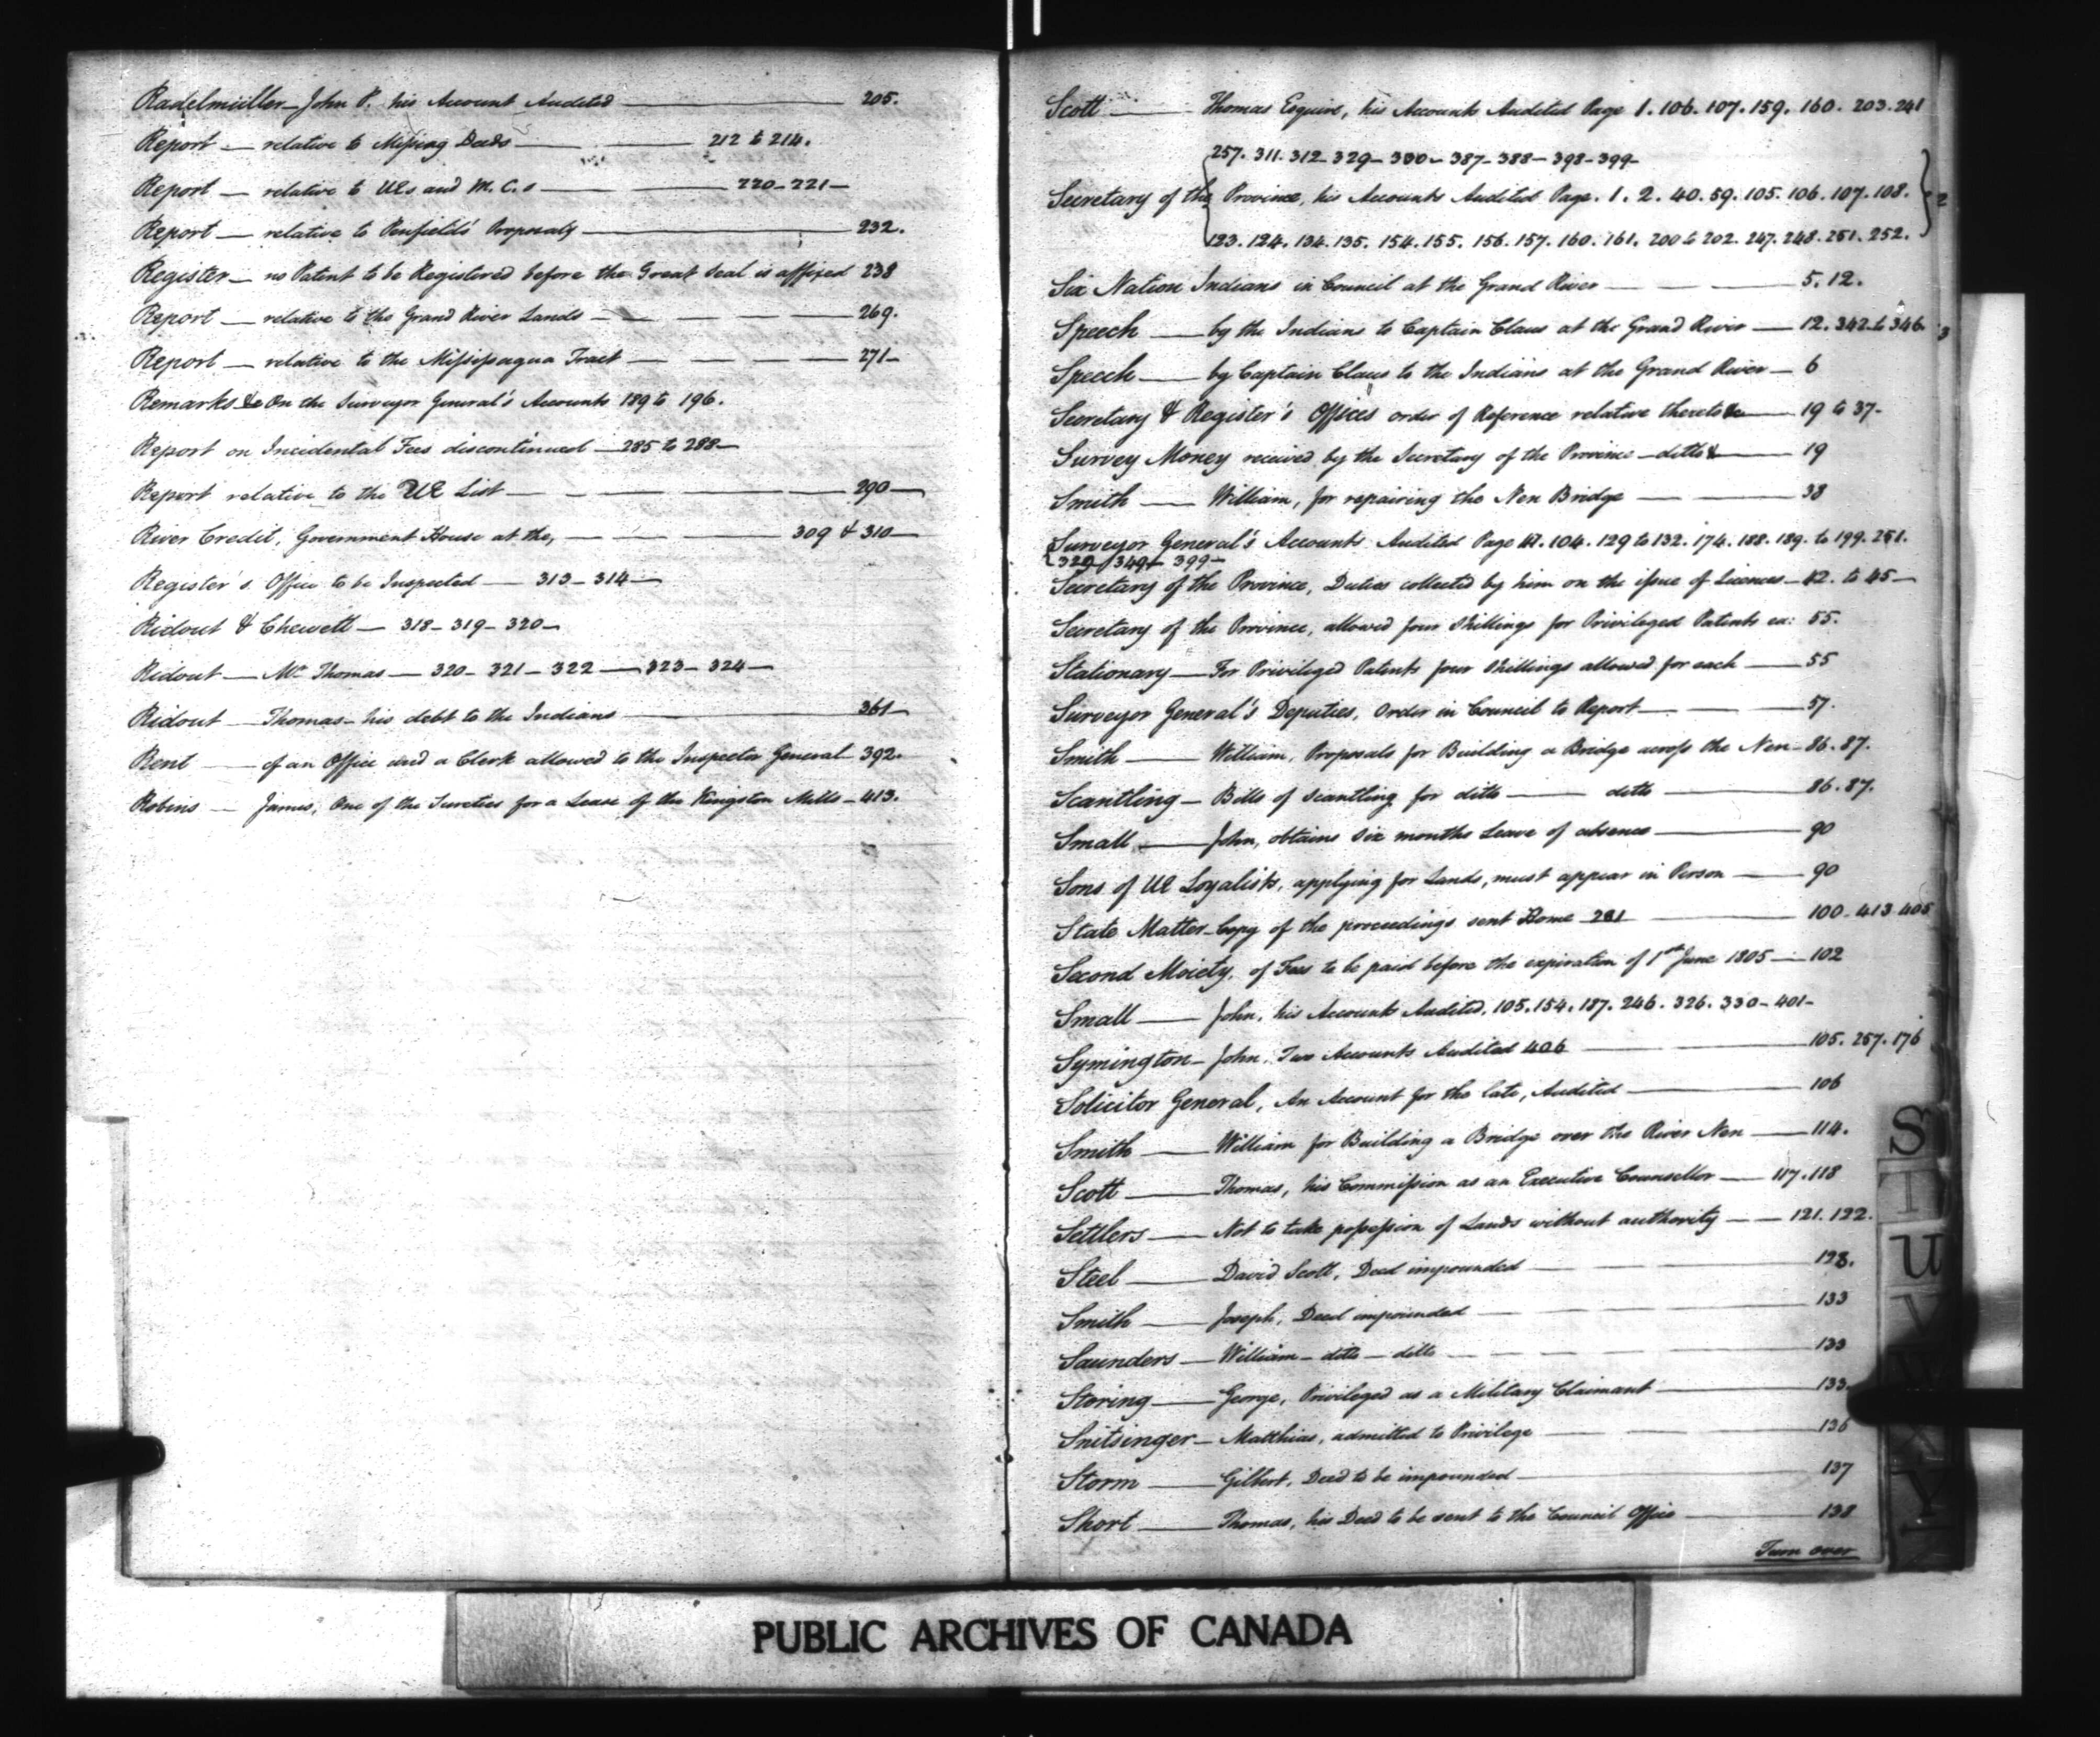 Radelmüller — John P. his Account Audited — 205.
Report — relative to Missing Deeds — 212 to 214.
Report — relative to UEs and M.C.s — 220 - 221 —
Report — relative to Penfield's Proposals — 232.
Register — no Patent to be Registered before the Great Seal is affixed 238
Report — relative to the Grand River Lands — 269.
Report — relative to the Missisaqua Tract — 271 —
Remarks &c On the Surveyor General's Accounts 189 to 196.
Report on Incidental Fees discontinued — 285 to 288 —
Report relative to the UE List — 290 —
River Credit, Government House at the, — 309 & 310 —
Register's Office to be Inspected — 313 - 314 —
Ridout & Chewett — 318 - 319 - 320 —
Ridout — Mr Thomas — 320 - 321 - 322 — 323 - 324 —
Ridout — Thomas - his debt to the Indians — 361 —
Rent — of an Office and a Clerk allowed to the Inspector General — 392.
Robins — James, One of the Sureties for a Lease of the Kingston Mills — 413.
Scott — Thomas Esquire, his Accounts Audited Page 1. 106. 107. 159. 160. 203. 241
257. 311. 312 - 329 - 330 - 387 - 388 - 398 - 399 -
Secretary of the Province, his Accounts Audited Page. 1. 2. 40. 59. 105. 106. 107. 108.
123. 124. 134. 135. 154. 155. 156. 157. 160. 161. 200 to 202. 247. 248. 251. 252.
Six Nation Indians in Council at the Grand River — 5. 12.
Speech — by the Indians to Captain Claus at the Grand River — 12. 342 to 346.
Speech — by Captain Claus to the Indians at the Grand River — 6
Secretary & Register's Offices order of Reference relative thereto — 19 to 37 -
Survey Money received by the Secretary of the Province — ditto — 19
Smith — William, for repairing the Nen Bridge — 38
Surveyor General's Accounts Audited Page 41. 104. 129 to 132. 174. 188. 189. to 199. 251.
329 / 349 - 399 -
Secretary of the Province, Duties collected by him on the issue of Licences — 42. to 45 —
Secretary of the Province, allowed four Shillings for Privileged Patents ea: 55.
Stationary — For Privileged Patents four Shillings allowed for each — 55
Surveyor General's Deputies, Order in Council to Report — 57.
Smith — William, Proposals for Building a Bridge across the Nen — 86. 87.
Scantling — Bills of Scantling for ditto — ditto — 86. 87.
Small — John, obtains Six months Leave of absence — 90
Sons of UE Loyalists, applying for Lands, must appear in Person — 90
State Matter — Copy of the proceedings sent Home 281 — 100 - 413 405
Second Moiety, of Fees to be paid before the expiration of 1st June 1805 — 102
Small — John, his Accounts Audited, 105. 154. 187. 246. 326. 330 - 401 -
Symington — John, Two Accounts Audited 406 — 105. 257. 176
Solicitor General, An Account for the late, Audited — 106
Smith — William for Building a Bridge over the River Nen — 114.
Scott — Thomas, his Commission as an Executive Counsellor — 117. 118
Settlers — Not to take possession of Lands without authority — 121. 122.
Steel — David Scott, Deed impounded — 128.
Smith — Joseph, Deed impounded — 133
Saunders — William — ditto — ditto — 133
Storing — George, Privileged as a Military Claimant — 133.
Snitsinger — Matthias, admitted to Privilege — 136
Storm — Gilbert, Deed to be impounded — 137
Short — Thomas, his Deed to be sent to the Council Office — 138
Turn over
S
T
U
V
W
X
Y
PUBLIC ARCHIVES OF CANADA